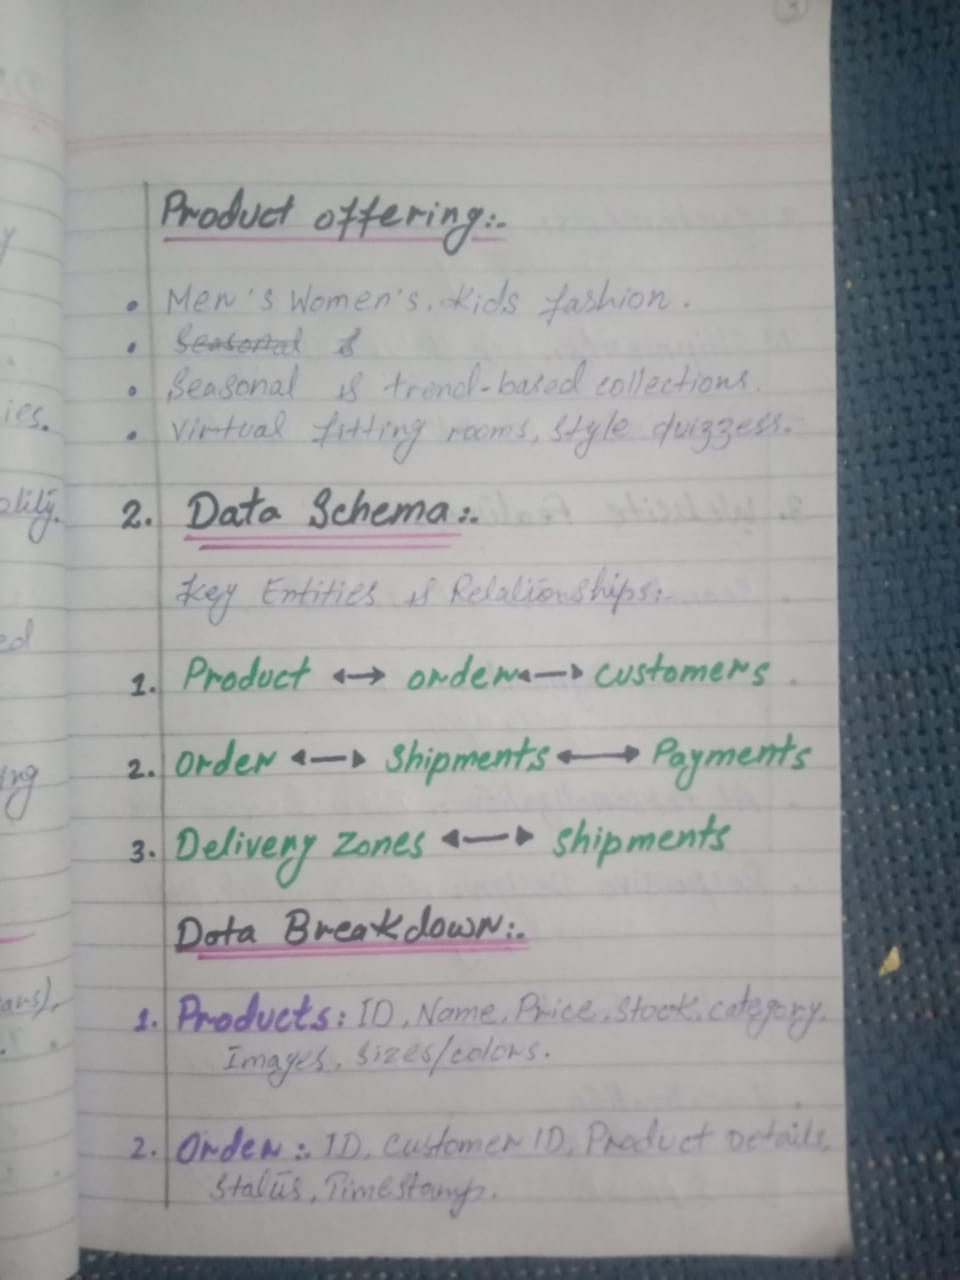 3
Product offering:.
• Men's Women's, Kids fashion.
• Seasonal &
• Seasonal & trend-based collections.
• Virtual fitting rooms, Style quizzess.
2. Data Schema:.
Key Entities & Relationships:.
1. Product ↔ order ↔ customers.
2. order ↔ Shipments ↔ Payments
3. Delivery Zones ↔ Shipments
Data Breakdown:.
1. Products: ID, Name, Price, Stock, category,
Images, Sizes/colors.
2. Order:. ID, Customer ID, Product Details,
Status, Timestamp.